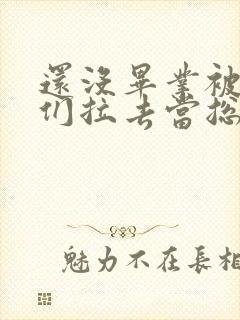 還没畢業被
们拉去當总
魅力不在長相